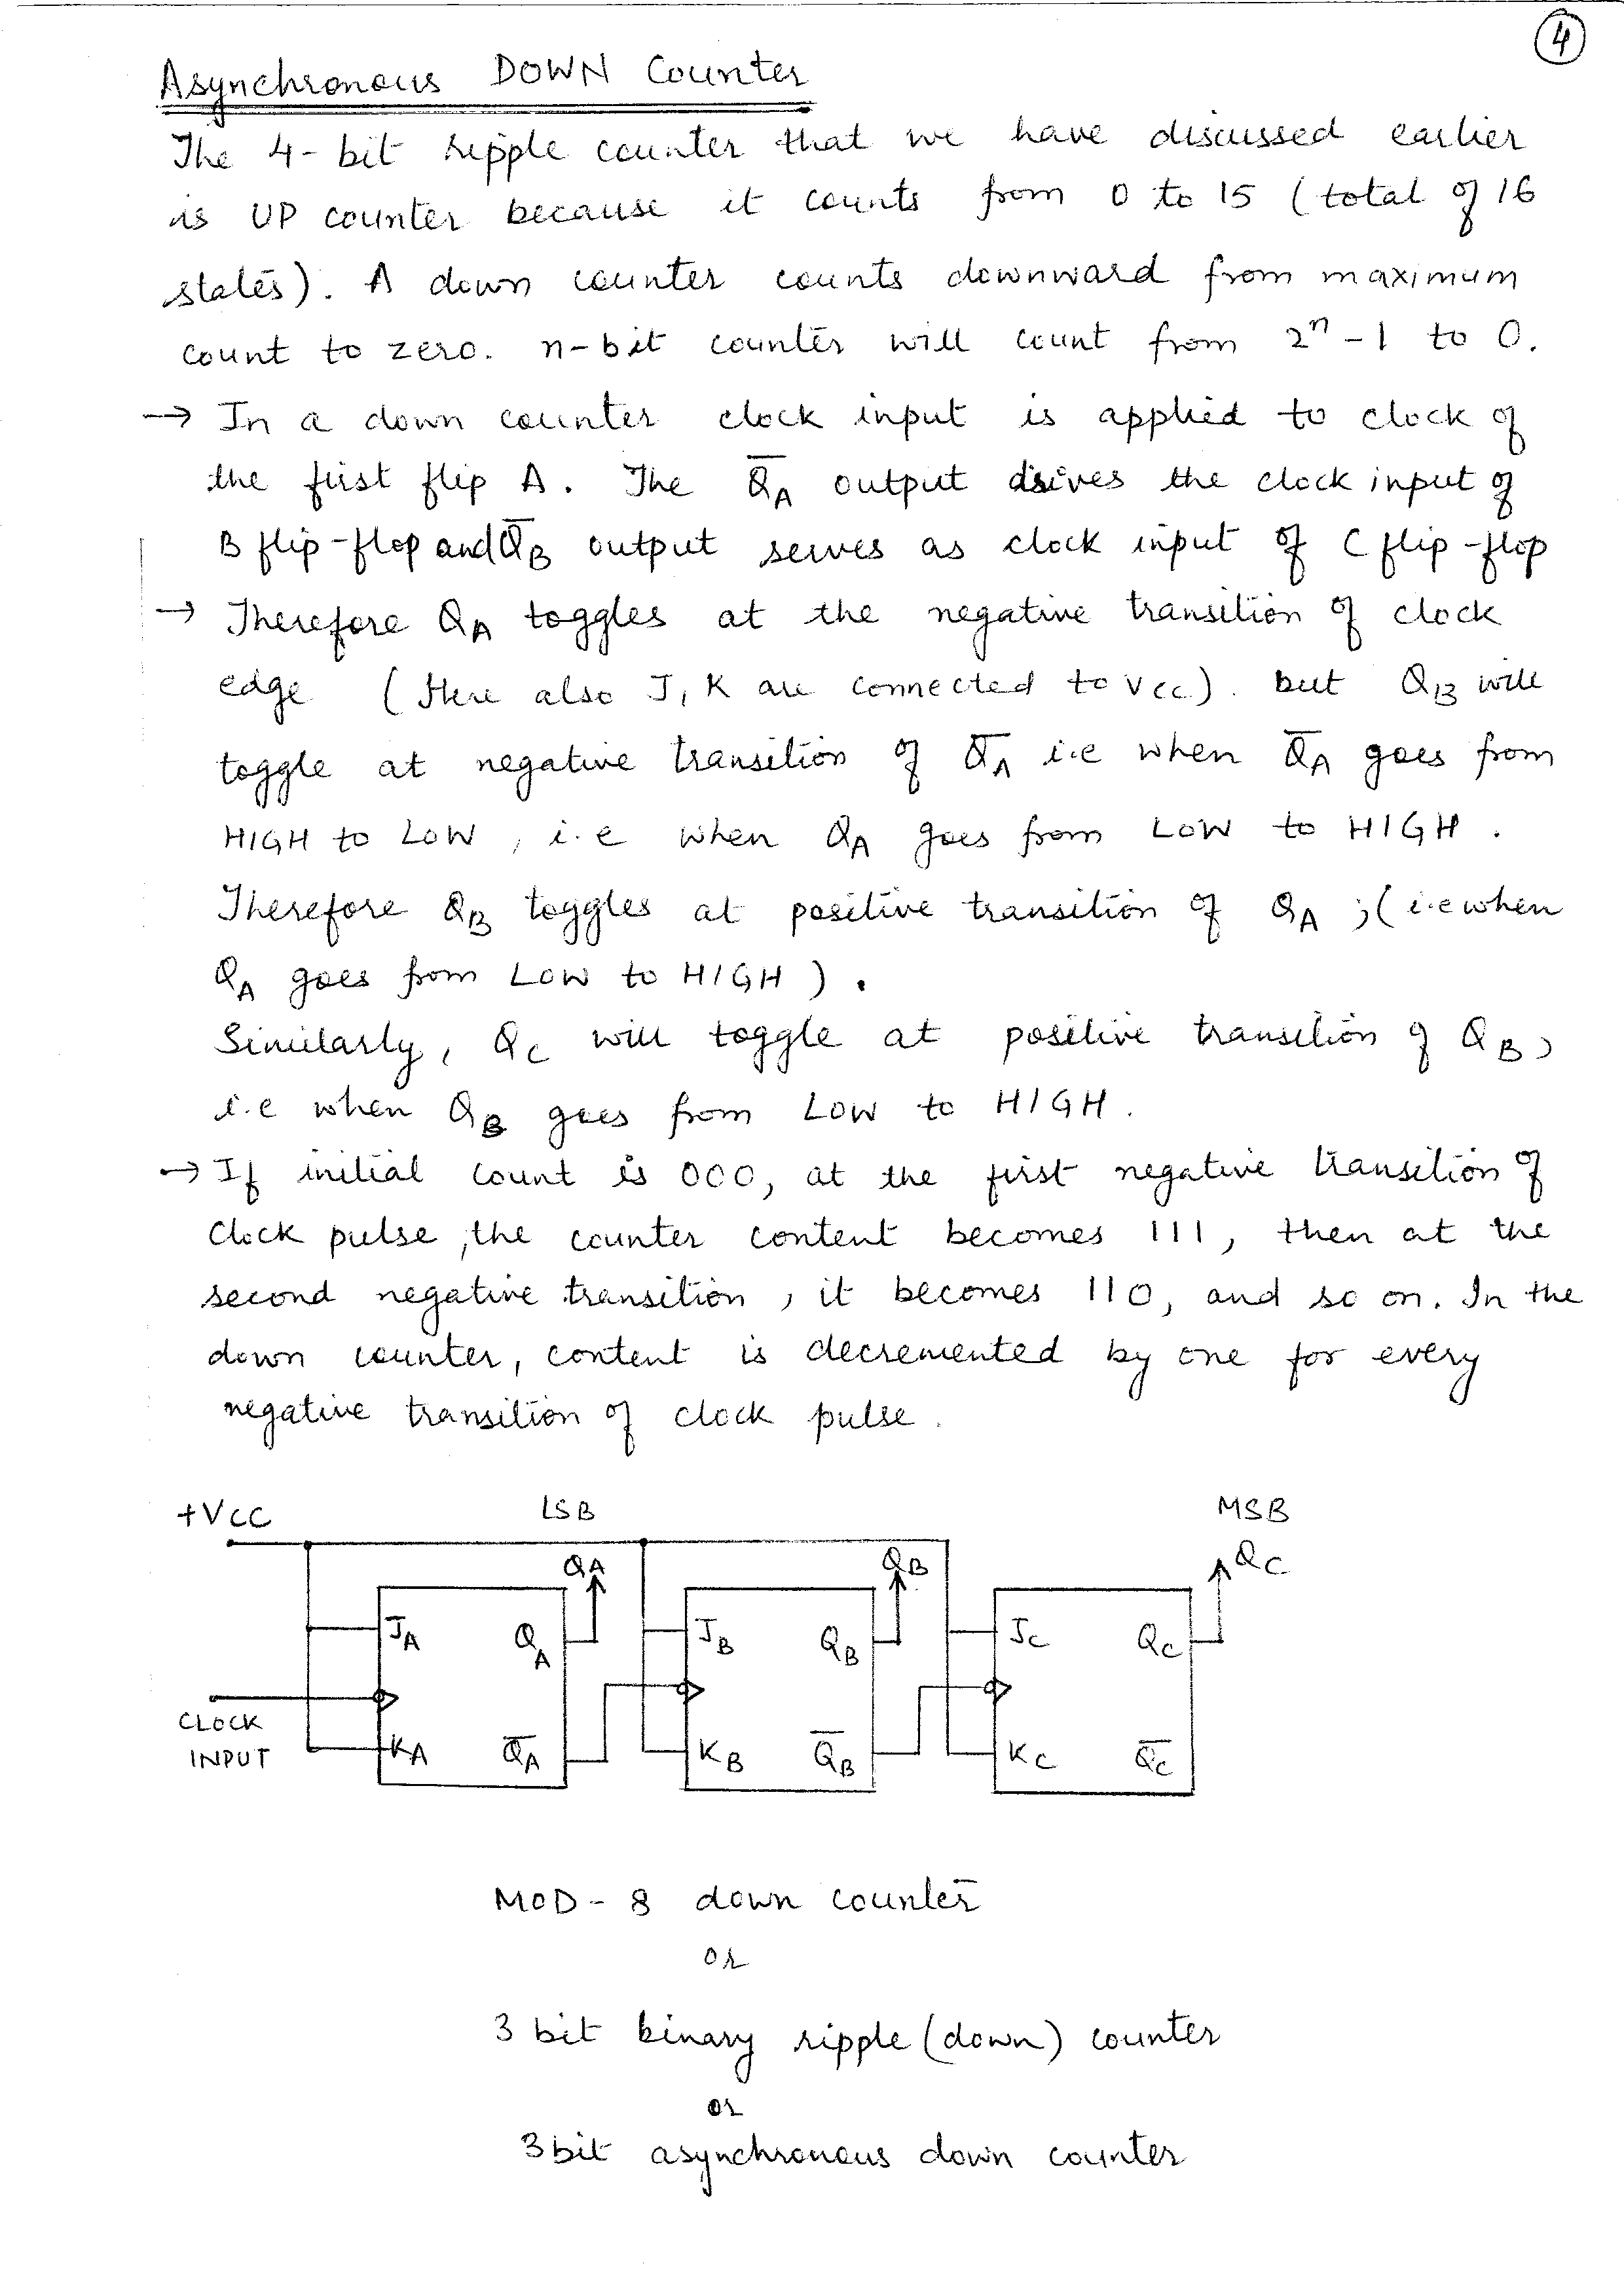 4
Asynchronous DOWN Counter
The 4-bit ripple counter that we have discussed earlier
is UP counter because it counts from 0 to 15 (total of 16
states). A down counter counts downward from maximum
count to zero. n-bit counter will count from 2ⁿ-1 to 0.
→ In a down counter clock input is applied to clock of
the first flip A. The Q̅A output drives the clock input of
B flip-flop and Q̅B output serves as clock input of C flip-flop
→ Therefore QA toggles at the negative transition of clock
edge (Here also J, K are connected to Vcc). but QB will
toggle at negative transition of Q̅A i.e when Q̅A goes from
HIGH to LOW, i.e when QA goes from LOW to HIGH.
Therefore QB toggles at positive transition of QA ; (i.e when
QA goes from LOW to HIGH).
Similarly, QC will toggle at positive transition of QB,
i.e when QB goes from LOW to HIGH.
→ If initial count is 000, at the first negative transition of
clock pulse, the counter content becomes 111, then at the
second negative transition, it becomes 110, and so on. In the
down counter, content is decremented by one for every
negative transition of clock pulse.
+VCC LSB MSB
QA QB QC
JA QA JB QB JC QC
CLOCK
INPUT
KA Q̅A KB Q̅B KC Q̅C
MOD-8 down counter
or
3 bit binary ripple (down) counter
or
3 bit asynchronous down counter